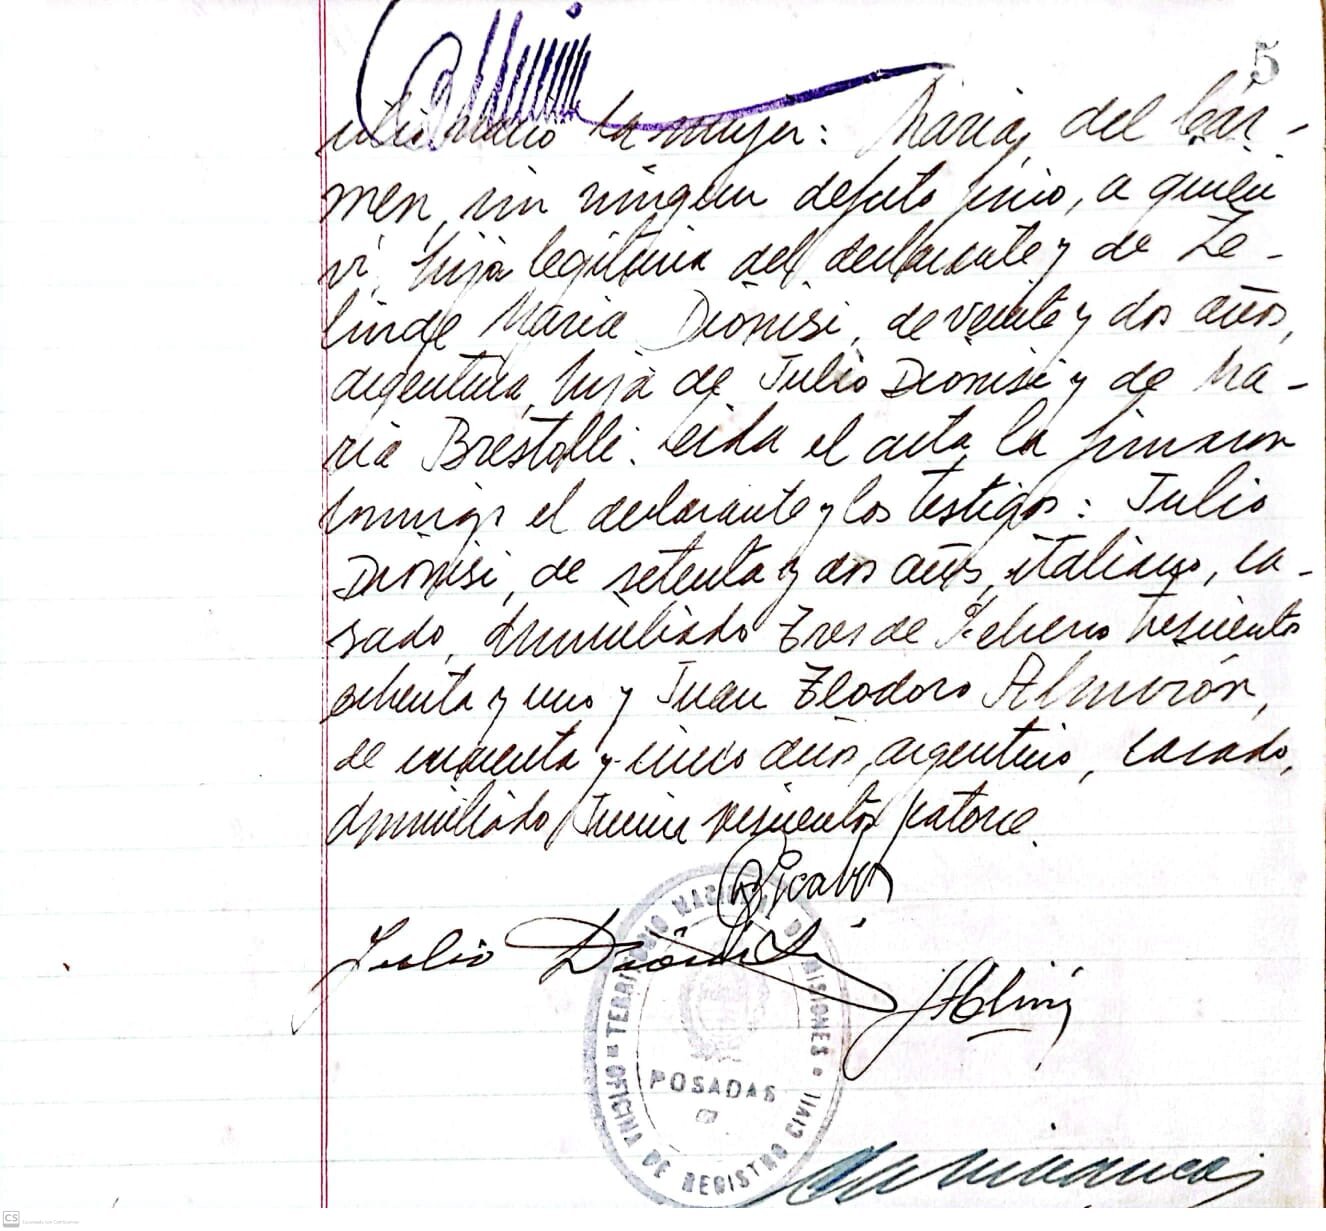 5
la mujer: María, del Cár-
men, sin ningun defecto físico, a quien
ví, hija legitima del declarante y de Ze-
linde María Dionisi, de veinte y dos años,
argentina, hija de Julio Dionisi y de Ma-
ria Brestolli. Leida el acta la firmaron
conmigo el declarante y los testigos: Julio
Dionisi, de setenta y dos años, italiano, ca-
sado, domiciliado Tres de Febrero trescientos
ochenta y uno y Juan Teodoro Almirón,
de cincuenta y cinco años, argentino, casado,
domiciliado Junin catorce.
Julio Dionisi
TERRITORIO NACIONAL DE MISIONES
POSADAS
OFICINA DE REGISTRO CIVIL
CS